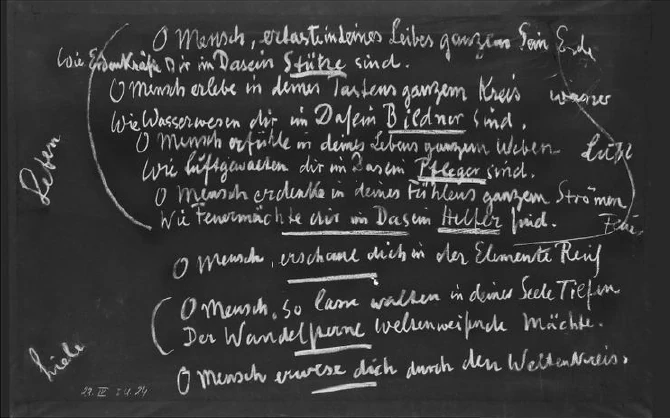 O Mensch, ertaste in deines Leibes ganzem Sein Erde
Wie Erdenkräfte Dir im Dasein Stütze sind.
O Mensch erlebe in deines Tastens ganzem Kreis wasser
Wie Wasserwesen dir im Dasein Bildner sind.
O Mensch erfühle in deines Lebens ganzem Weben Luft
Wie Luftgewalten dir im Dasein Pfleger sind.
O Mensch erdenke in deines Fühlens ganzem Strömen
Wie Feuermächte dir im Dasein Helfer sind. Feuer
O Mensch, erschaue dich in der Elemente Reich
O Mensch, so lasse walten in deiner Seele Tiefen
Der Wandelsterne weltenweisende Mächte.
O Mensch erwese dich durch den Weltenkreis.
Leben
Liebe